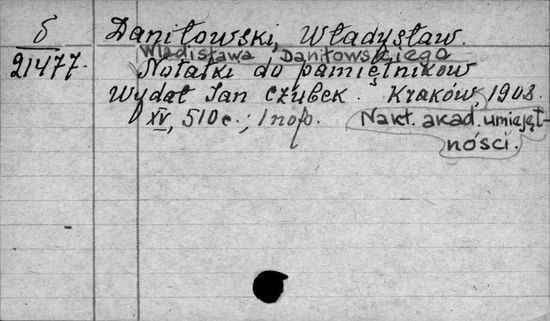 б
21477.
Daniłowski, Władysław.
Władisława Daniłowskiego
Notatki do pamiętników
Wydał Jan Czubek. Kraków, 1908.
XV, 510 c.; 1 пор.
Nakł. akad. umiejęt-
ności.